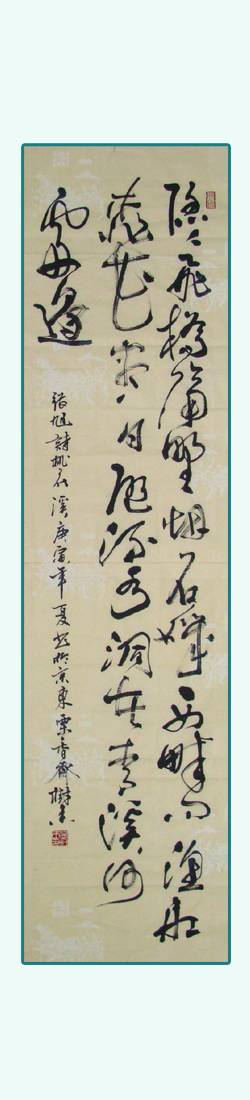 隱隱飛橋隔野烟石磯西畔问漁船
桃花盡日随流水洞在清溪何
處邊
張旭詩桃花溪庚寅年夏书於京東栗香齋樹